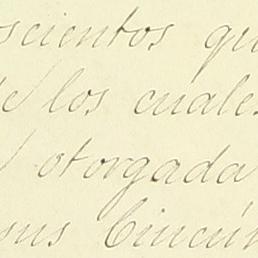 scientos qu
de los cuales
otorgada
sus Cincún